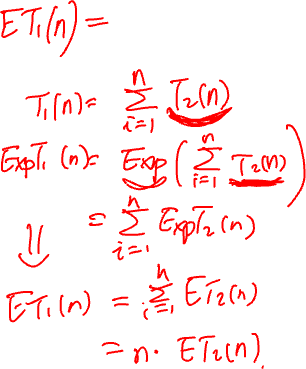 ET₁(n) =
T₁(n) = ∑ᵢ₌₁ⁿ T₂(n)
ExpT₁(n) = Exp(∑ᵢ₌₁ⁿ T₂(n))
= ∑ᵢ₌₁ⁿ ExpT₂(n)
⇓
ET₁(n) = ∑ᵢ₌₁ⁿ ET₂(n)
= n · ET₂(n)